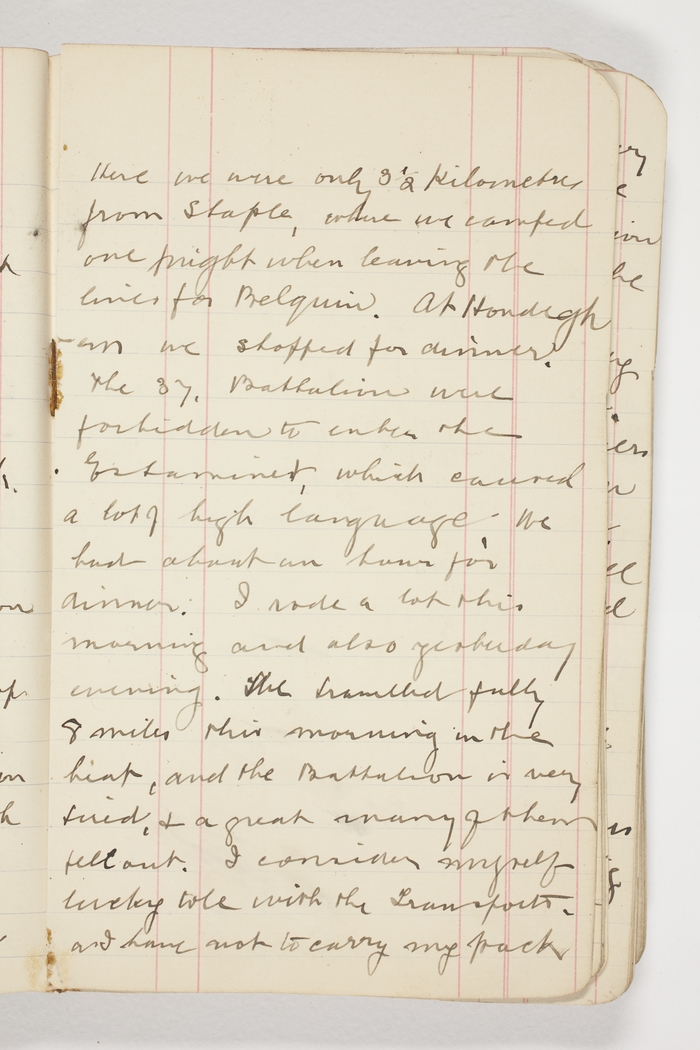 Here we were only 3½ Kilometres
from Staple, where we camped
one fnight when leaving the
lines for Belguim. At Hondegh
-em we stopped for dinner.
The 37. Battalion were
forbidden to enter the
Estaminet, which caused
a lot of high language. We
had about an hour for
dinner. I rode a lot this
morning and also yesterday
evening. We travelled fully
8 miles this morning in the
heat, and the Battalion is very
tired, & a great many of them
fell out. I consider myself
lucky to be with the Transport.
as I have not to carry my pack